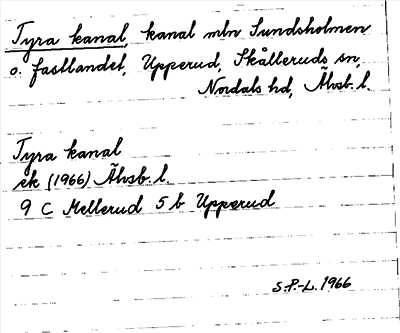 Tyra kanal, kanal mln Sundsholmen
o. fastlandet, Upperud, Skålleruds sn,
Nordals hd, Älvsb. l.
Tyra kanal
ek (1966) Älvsb. l.
9 C Mellerud 5 b Upperud
S.P.-L. 1966